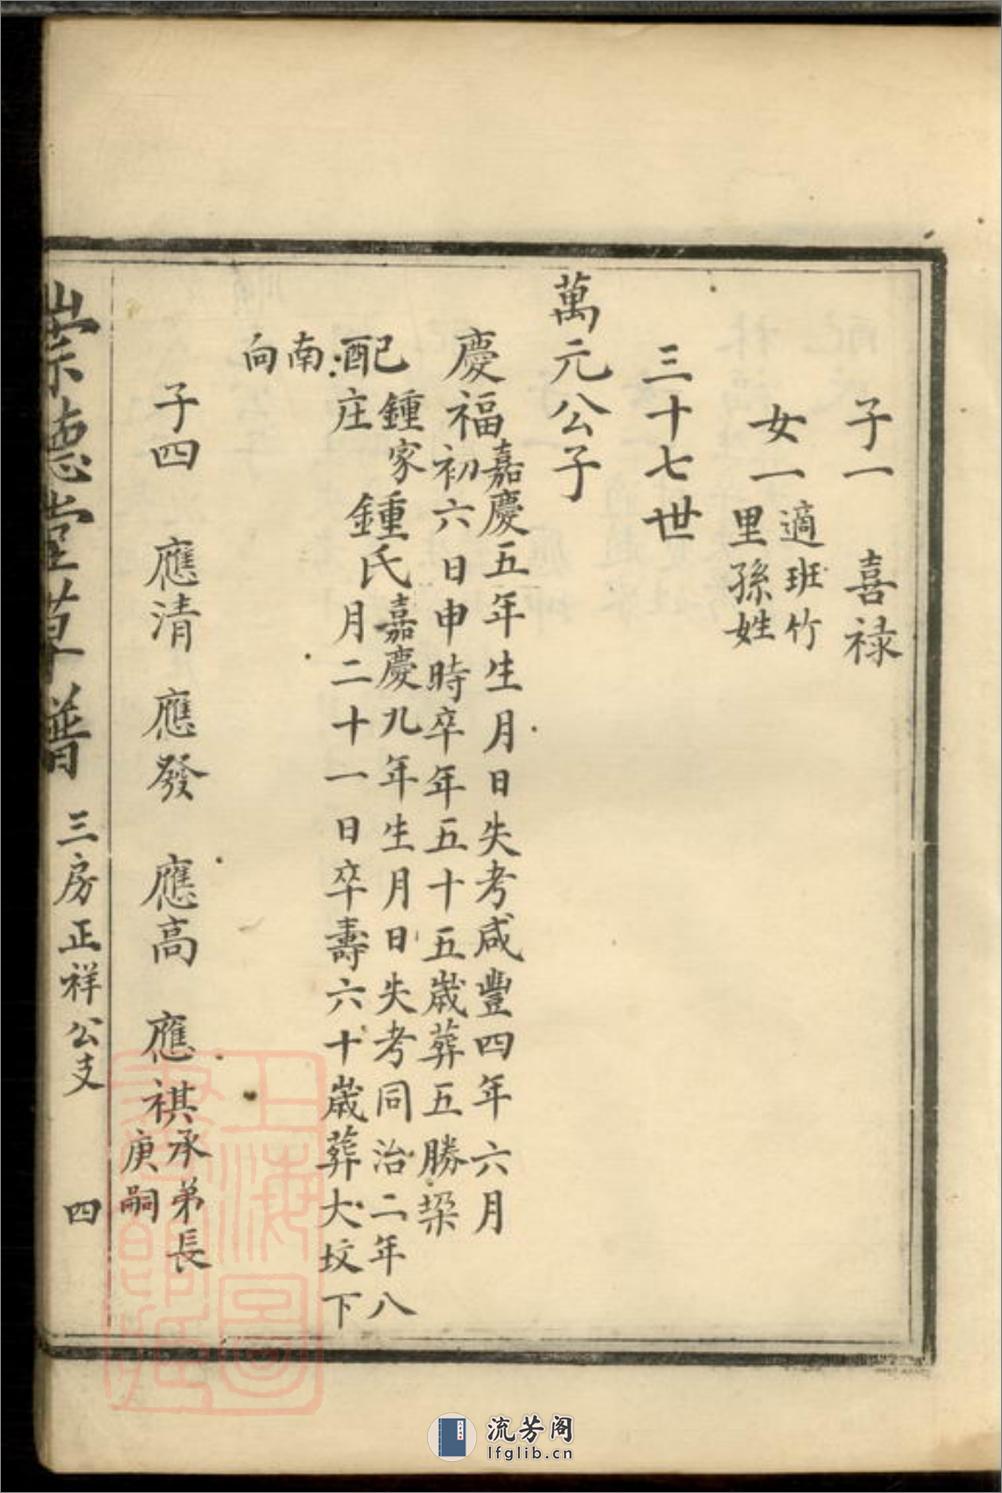 子一　喜禄
女一 適班竹
里孫姓
三十七世
萬元公子
慶福 嘉慶五年生月日失考咸豐四年六月
初六日申時卒年五十五歲葬五勝梁
配 鍾家
庄
鍾氏 嘉慶九年生月日失考同治二年八
月二十一日卒壽六十歲葬大坟下
南向
子四　應清　應發　應高　應祺 承弟長
庚嗣
崇德堂草譜　三房正祥公支　四
上海圖書館藏
流芳阁
lfglib.cn